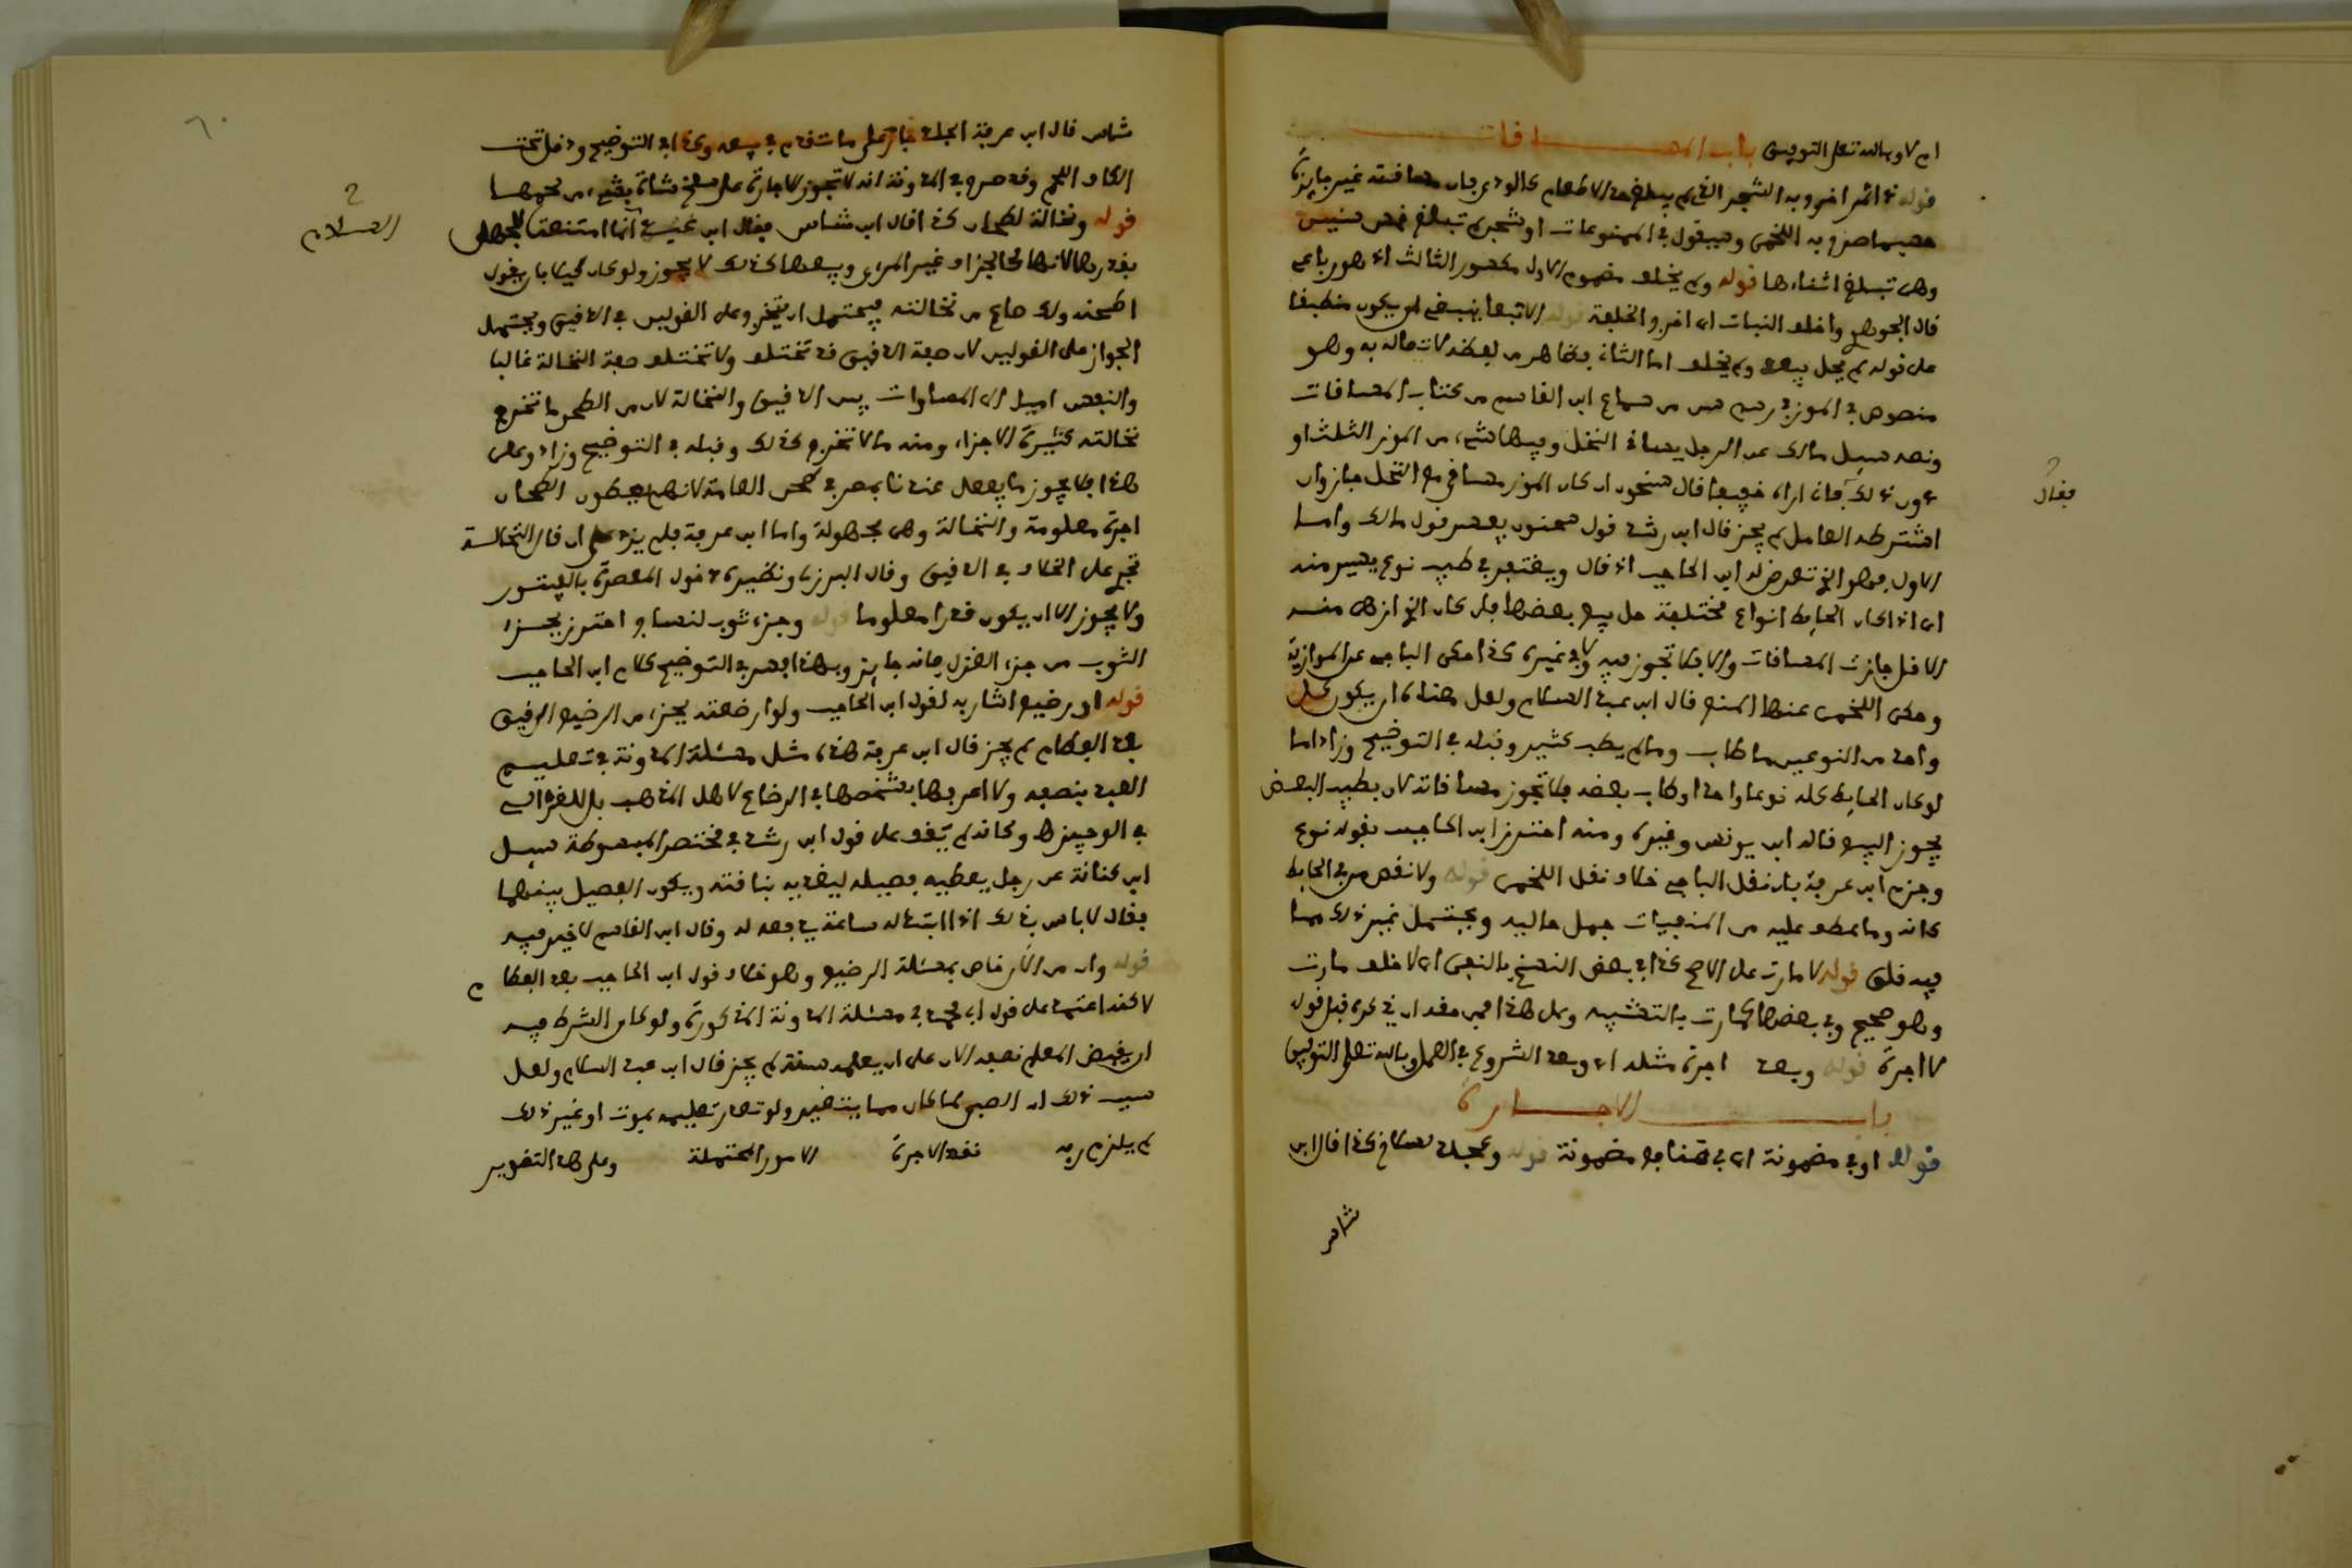 اي لا وبالله تعلى التوفيق باب المساقات
قوله ذي ثمر اخرج به الشجر الذي لم يبلغ حد الاطعام كالودي فان مساقته غير جايزة
حسبما صرح به اللخمي وسيقول في الممنوعات او شجر لم تبلغ خمس سنين
وهي تبلغ اثناءها قوله ولم يخلف مفهوم الاول مقصور الثالث اذ هو رباعي
قال الجوهري واخلف النبات اي اخرج الخلفة قوله الا تبعا ينبغي ان يكون منطبقا
على قوله لم يحل بيعه ولم يخلف اما الثاني فظاهر من لفظه لاتصاله به وهو
منصوص في الموز في رسم سن من سماع ابن القاسم من كتاب المساقات
ونصه سيل مالك عن الرجل يساقي النخل وفيها شيء من الموز الثلث او
دون ذلك فقال اراه خفيفا قال سحنون ان كان الموز مساقى مع النخل جاز وان
فقال
اشترطه العامل لم يجز قال ابن رشد قول سحنون يفسر قول مالك واما
الاول فهو الذي تعرض له ابن الحاجب اذ قال ويغتفر في طيب نوع يسير منه
اي اذا كان الحايط انواع مختلفة حل بيع بعضها فان كان الذي ازهى منه
الاقل جازت المساقات والا فلا تجوز فيه ولا في غيره كذا حكى الباجي عن الموازية
وحكى اللخمي عنها المنع قال ابن عبد السلام ولعل هذا ان يكون كل
واحد من النوعين ما طاب وما لم يطب كثير وقبله في التوضيح وزاد اما
لو كان الحايط كله نوعا واحدا وطاب بعضه فلا تجوز مساقاته لان بطيب البعض
يجوز البيع قاله ابن يونس وغيره ومنه احترز ابن الحاجب بقوله نوع
وجزم ابن عرفة بان نقل الباجي خلاف نقل اللخمي قوله ولا نقص من في الحايط
كانه وما عطف عليه من المنفيات جمل حالية ويحتمل غير ذلك مما
فيه قلق قوله لا مارت على الاصح كذا في بعض النسخ بالنفي اي لا خلف مارت
وهو صحيح وفي بعضها كمارت بالتشبيه وعلى هذا فمن مقدار في كره قبل قوله
لا اجرة قوله وبعد اجرة مثله اي وبعد الشروع في العمل وبالله تعلى التوفيق
باب الاجارة
قوله او في مضمونة اي في منافع مضمونة قوله وعجل بسلاخ كذا قال ابن
شاس
٦٠
شاس قال ابن عرفة الجلد جار على ما تقدم في بيعه وكذا في التوضيح ودخل تحت
الكاف اللحم وقد صرح في المدونة انه لا تجوز الاجارة على سلخ شاة بشيء من لحمها
قوله ونخالة لطحان كذا قال ابن شاس فقال ابن عبد انما امتنعت للجهل
السلام
بقدرها لانها كالجزاف غير المرءي وبيعها كذلك لا يجوز ولو كان كيلا بان يقول
اطحنه ولك صاع من نخالته فيحتمل ان يتخرج على القولين في الدقيق ويحتمل
الجواز على القولين لان صفة الدقيق قد تختلف ولا تختلف صفة النخالة غالبا
والنفس اميل الى المساوات بين الدقيق والنخالة لان من الطحن ما تخرج
نخالته كثيرة الاجزاء ومنه ما لا تخرج كذلك وقبله في التوضيح وزاد وعلى
هذا فلا يجوز ما يفعل عندنا بمصر في طحن العامة لانهم يعطون الطحان
اجرة معلومة والنخالة وهي مجهولة واما ابن عرفة فلم يزد على ان قال النخالة
تجري على الخلاف في الدقيق وقال البرزلي ونظيره دخول المعصرة بالفيتور
ولا يجوز الا ان يكون قدرا معلوما قوله وجزء ثوب لنساج احترز بجزء
الثوب من جزء الغزل فانه جايز وبهذا فسر في التوضيح كلام ابن الحاجب
قوله او رضيع اشار به لقول ابن الحاجب ولو ارضعته بجزء من الرضيع الرقيق
بعد الفطام لم يجز قال ابن عرفة هذه مثل مسئلة المدونة في تعليم
العبد بنصفه ولا اعرفها بشخصها في الرضاع لاهل المذهب بل للغزالي
في الوجيز وكانه لم يقف على قول ابن رشد في مختصر المبسوطة سيل
ابن كنانة عن رجل يعطيه فصيله ليغذيه بناقته ويكون الفصيل بينهما
فقال لا باس بذلك اذا ابتته له ساعة يدفعه له وقال ابن القاسم لا خير فيه
قوله وان من الان خاص بمسئلة الرضيع وهو خلاف قول ابن الحاجب بعد الفطام
لاكنه اعتمد على قول ابي محمد في مسئلة المدونة المذكورة ولو كان الشرط فيه
ان يقبض المعلم نصفه الان على ان يعلمه سنة لم يجز قال ابن عبد السلام ولعل
سبب ذلك ان الصبي لما كان مما يتغير ولو تعذر تعليمه بموت او غير ذلك
لم يلزم ربه نقد الاجرة الامور المحتملة وعلى هذا التقدير